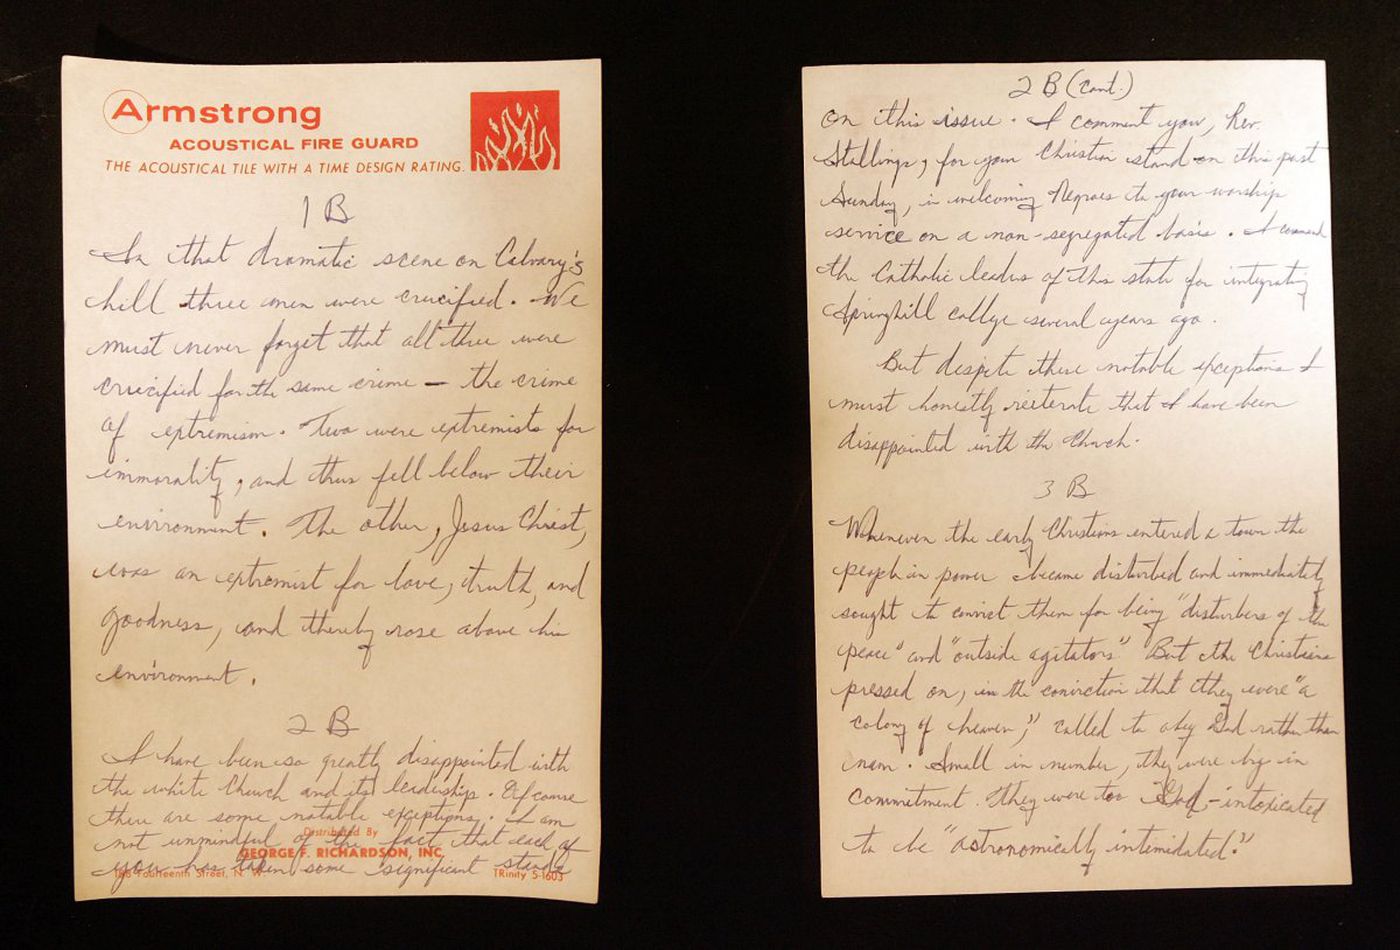 Armstrong
ACOUSTICAL FIRE GUARD
THE ACOUSTICAL TILE WITH A TIME DESIGN RATING.
1 B
In that dramatic scene on Calvary's
hill three men were crucified. We
must never forget that all three were
crucified for the same crime — the crime
of extremism. Two were extremists for
immorality, and thus fell below their
environment. The other, Jesus Christ,
was an extremist for love, truth, and
goodness, and thereby rose above his
environment.
2 B
I have been so greatly disappointed with
the white Church and its leadership. Of course
there are some notable exceptions. I am
not unmindful of the fact that each of
you has taken some significant stands
Distributed By
GEORGE F. RICHARDSON, INC.
Fourteenth Street, N. W. TRinity 5-1603
2 B (Cont.)
on this issue. I comment you, Rev.
Stallings, for your Christian stand on this past
Sunday, in welcoming Negroes to your worship
service on a non-segregated basis. I commend
the Catholic leaders of this state for integrating
Springhill college several years ago.
But despite these notable exceptions I
must honestly reiterate that I have been
disappointed with the Church.
3 B
Whenever the early Christians entered a town the
people in power became disturbed and immediately
sought to convict them for being "disturbers of the
peace" and "outside agitators" But the Christians
pressed on, in the conviction that they were "a
colony of heaven," called to obey God rather than
man. Small in number, they were big in
commitment. They were too God-intoxicated
to be "astronomically intimidated."